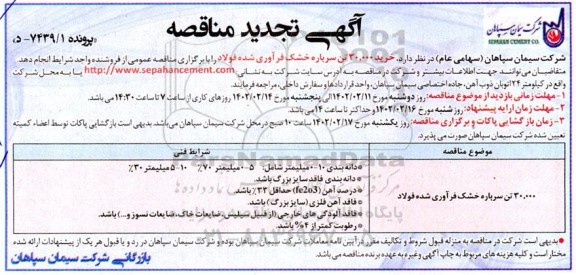 شرکت سیمان سپاهان
SEPAHAN CEMENT CO.
آگهی تجدید مناقصه
«پرونده ۷۴۳۹/۱-د»
شرکت سیمان سپاهان (سهامی عام) در نظر دارد، خرید ۳۰.۰۰۰ تن سرباره خشک فرآوری شده فولاد را با برگزاری مناقصه عمومی از فروشنده واجد شرایط انجام دهد.
متقاضیان می‌توانند جهت اطلاعات بیشتر و شرکت در مناقصه به آدرس سایت شرکت به نشانی: http://www.sepahancement.com یا به محل شرکت
واقع در کیلومتر ۲۴ اتوبان ذوب آهن، جاده اختصاصی سیمان سپاهان، واحد قراردادها و سفارش داخلی، مراجعه فرمایند.
۱- مهلت زمانی بازدید از موضوع مناقصه: روز دوشنبه مورخ ۱۴۰۲/۰۲/۱۱ الی پنجشنبه مورخ ۱۴۰۲/۰۲/۱۴ روزهای کاری از ساعت ۷ تا ساعت ۱۴:۳۰ می باشد.
۲- مهلت زمان ارایه پیشنهاد: روز شنبه مورخ ۱۴۰۲/۰۲/۱۶ و حداکثر تا ساعت ۱۴ می باشد.
۳- زمان بازگشایی پاکات و برگزاری مناقصه: روز یکشنبه مورخ ۱۴۰۲/۰۲/۱۷ ساعت ۱۰ صبح در محل شرکت سیمان سپاهان می‌باشد، بدیهی است بازگشایی پاکات توسط اعضاء کمیته
تعیین شده شرکت سیمان سپاهان صورت می پذیرد.
موضوع مناقصه
شرایط فنی
۳۰.۰۰۰ تن سرباره خشک فرآوری شده فولاد
• دانه بندی ۱۰-۰ میلیمتر شامل: ۵-۰ میلیمتر ۷۰٪ ۱۰-۵ میلیمتر ۳۰٪
• دانه بندی فاقد سایز بزرگ باشد.
• درصد آهن (fe2o3) حداقل ۳۳٪ باشد.
• فاقد آهن فلزی (سایز بزرگ) باشد.
• فاقد آلودگی های خارجی (از قبیل سیلیس، ضایعات خاک، ضایعات نسوز و...) باشد.
• رطوبت کمتر از ۴٪ باشد.
• بدیهی است شرکت در مناقصه به منزله قبول شروط و تکالیف مقرر در آیین نامه معاملات شرکت سیمان سپاهان بوده و شرکت سیمان سپاهان در رد و یا قبول هر یک از پیشنهادات ارائه شده
مختار است و کلیه هزینه های مربوط به چاپ آگهی وغیره به عهده برنده مناقصه می باشد.
بازرگانی شرکت سیمان سپاهان